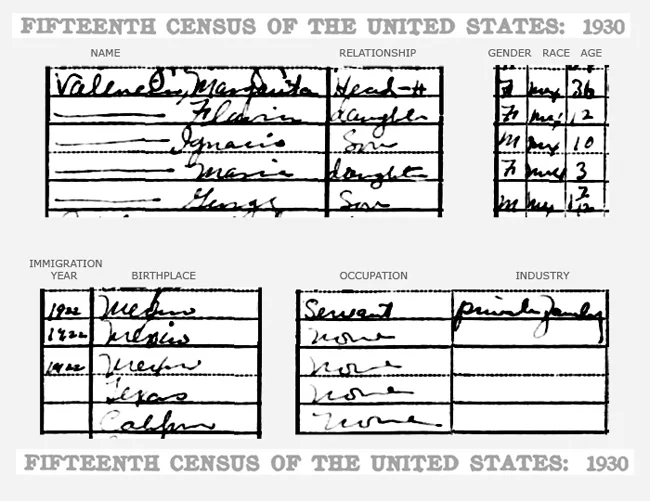 FIFTEENTH CENSUS OF THE UNITED STATES: 1930
NAME RELATIONSHIP GENDER RACE AGE
Margarita Head-H F mex 36
daughter F mex 12
Ignacio Son M mex 10
Maria daughter F mex 3
George Son M mex 7/12
IMMIGRATION
YEAR BIRTHPLACE OCCUPATION INDUSTRY
1922 Mexico Servant private family
1922 Mexico none
1922 Mexico none
Texas none
none
FIFTEENTH CENSUS OF THE UNITED STATES: 1930